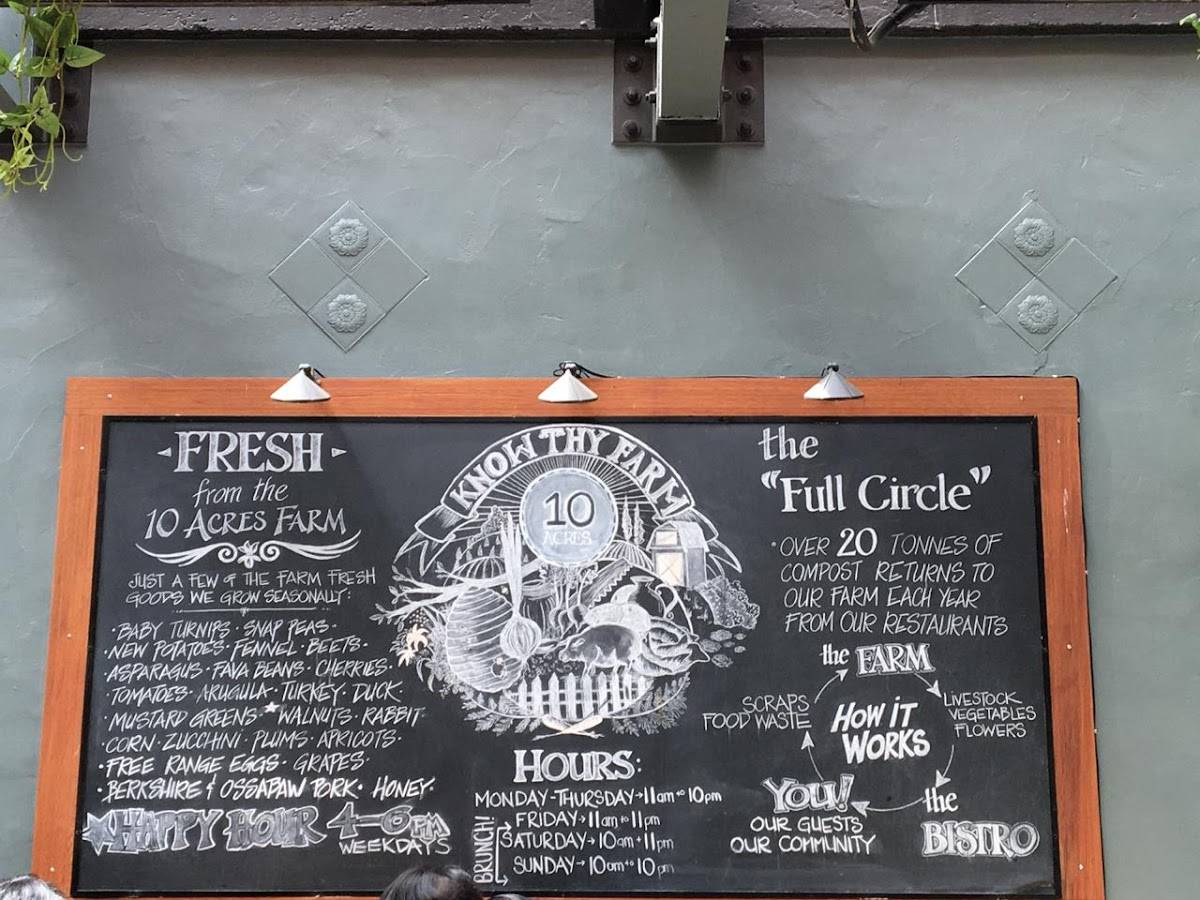 -FRESH-
from the
10 ACRES FARM
JUST A FEW of THE FARM FRESH
GOODS WE GROW SEASONALLY:
·BABY TURNIPS·SNAP PEAS·
·NEW POTATOES·FENNEL·BEETS·
·ASPARAGUS·FAVA BEANS·CHERRIES·
·TOMATOES·ARUGULA·TURKEY·DUCK·
·MUSTARD GREENS·WALNUTS·RABBIT·
·CORN·ZUCCHINI·PLUMS·APRICOTS·
·FREE RANGE EGGS·GRAPES·
·BERKSHIRE & OSSABAW PORK·HONEY·
HAPPY HOUR 4-6PM
WEEKDAYS
KNOW THY FARM
10
ACRES
HOURS:
MONDAY-THURSDAY→11am to 10pm
FRIDAY→11am to 11pm
BRUNCH!
SATURDAY→10am to 11pm
SUNDAY→10am to 10pm
the
"Full Circle"
·OVER 20 TONNES OF
COMPOST RETURNS TO
OUR FARM EACH YEAR
FROM OUR RESTAURANTS
the FARM
LIVESTOCK
VEGETABLES
FLOWERS
the
BISTRO
YOU!
OUR GUESTS
OUR COMMUNITY
SCRAPS
FOOD WASTE
HOW IT
WORKS